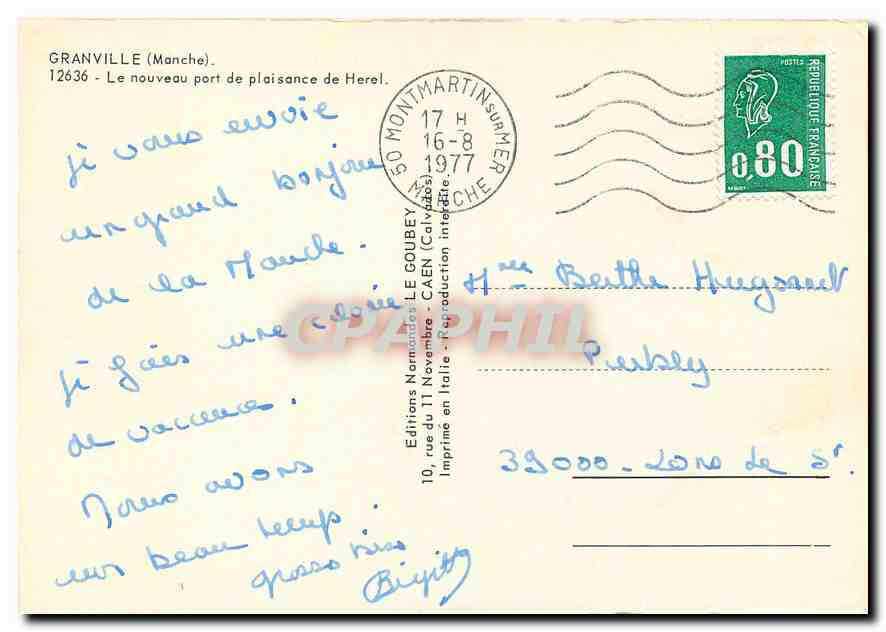 GRANVILLE (Manche).
12636 - Le nouveau port de plaisance de Herel.
je vous envoie
un grand bonjour
de la Manche.
je fais une colonie
de vacance.
Nous avons
un beau temps.
grosse bise
Brigitte
50 MONTMARTIN SUR MER
17 H
16-8
1977
MANCHE
POSTES
REPUBLIQUE FRANÇAISE
0,80
BEQUET
Editions Normandes LE GOUBEY
10, rue du 11 Novembre - CAEN (Calvados)
Imprimé en Italie - Reproduction interdite.
CPAPHIL
Mme Berthe
39000 - Lons le Sr.